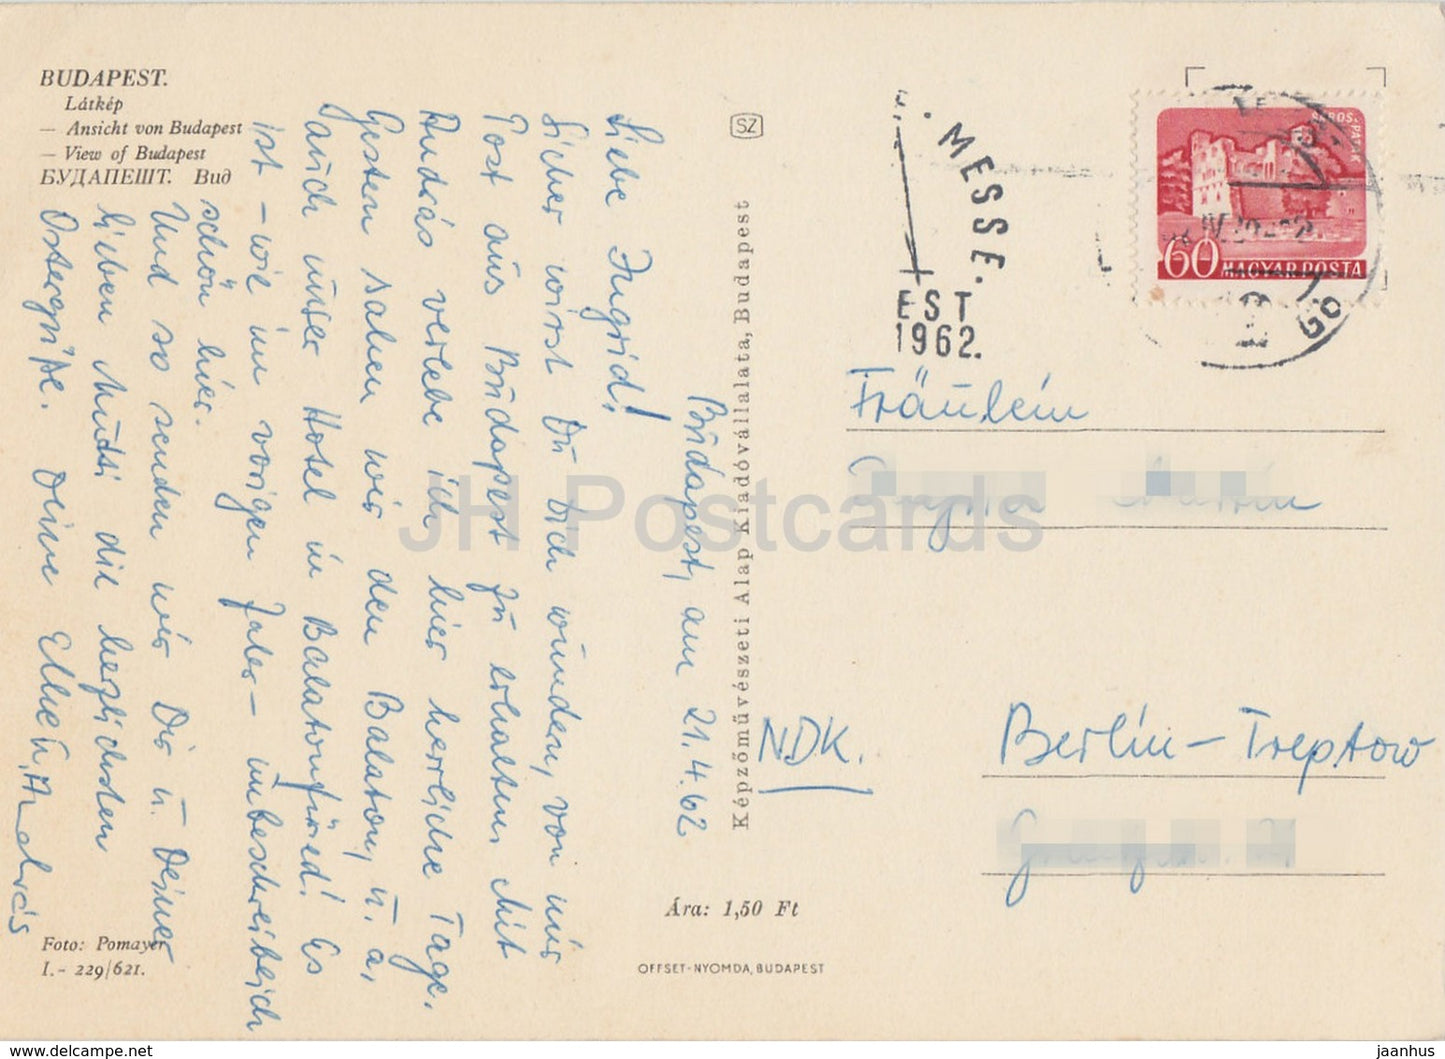 BUDAPEST.
Látkép
— Ansicht von Budapest
— View of Budapest
БУДАПЕШТ. Вид
Budapest, am 21.4.62
Liebe Ingrid!
Sicher wirst Du Dich wundern, von mir
Post aus Budapest zu erhalten. Mit
András verlebe ich hier herrliche Tage.
Gestern sahen wir den Balaton, u. a.
auch unser Hotel in Balatonfüred! Es
ist – wie im vorigen Jahr – unbeschreiblich
schön hier.
Und so senden wir Dir u. Deiner
lieben Mutti die herzlichsten
Ostergrüße. Deine Elke u. András
Foto: Pomayer
I.- 229/621.
SZ
Képzőművészeti Alap Kiadóvállalata, Budapest
Ára: 1,50 Ft
OFFSET-NYOMDA, BUDAPEST
. MESSE.
EST
1962.
60 MAGYAR POSTA
Fräulein
NDK.
Berlin – Treptow
JH Postcards
www.delcampe.net
jaanhuus